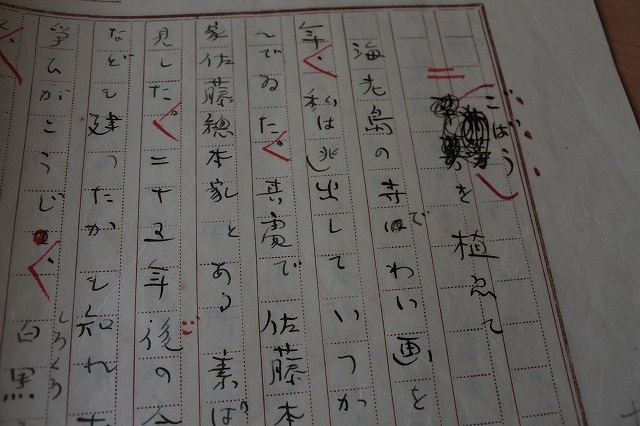 ごばうを植ゑて
海老島の寺ではわい画を
年、私は逃出していつか
んでゐた。真寛で佐藤本
家佐藤總本家とある素ば
見した。二十五年後の
なども建つたかも知れ
争ひがこうじ、白黒
しろくろ